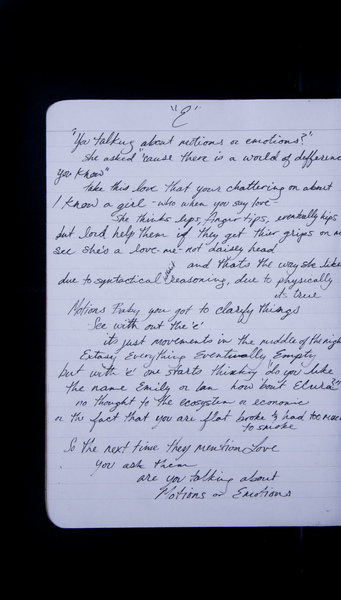 "E"
"You talking about motions or emotions?"
She asked "cause there is a world of difference
you know"
take this love that your chattering on about
I know a girl - who when you say love -
She thinks lips, finger tips, eventually hips
but lord help them if they get thier grips on me
see she's a love-me-not daisy head
and thats the way she likes
due to syntactical reasoning, due to physically
its true
Motions Baby you got to clarify things
See with out the 'e'
its just movements in the middle of the night
Extasy Everything Eventually Empty
but with 'e' one starts thinking 'do you like
the name Emily or Ian how 'bout
no thought to the ecosystem or economic
or the fact that you are flat broke & had too much
to smoke
So the next time they mention Love
you ask them
are you talking about
Motions or Emotions